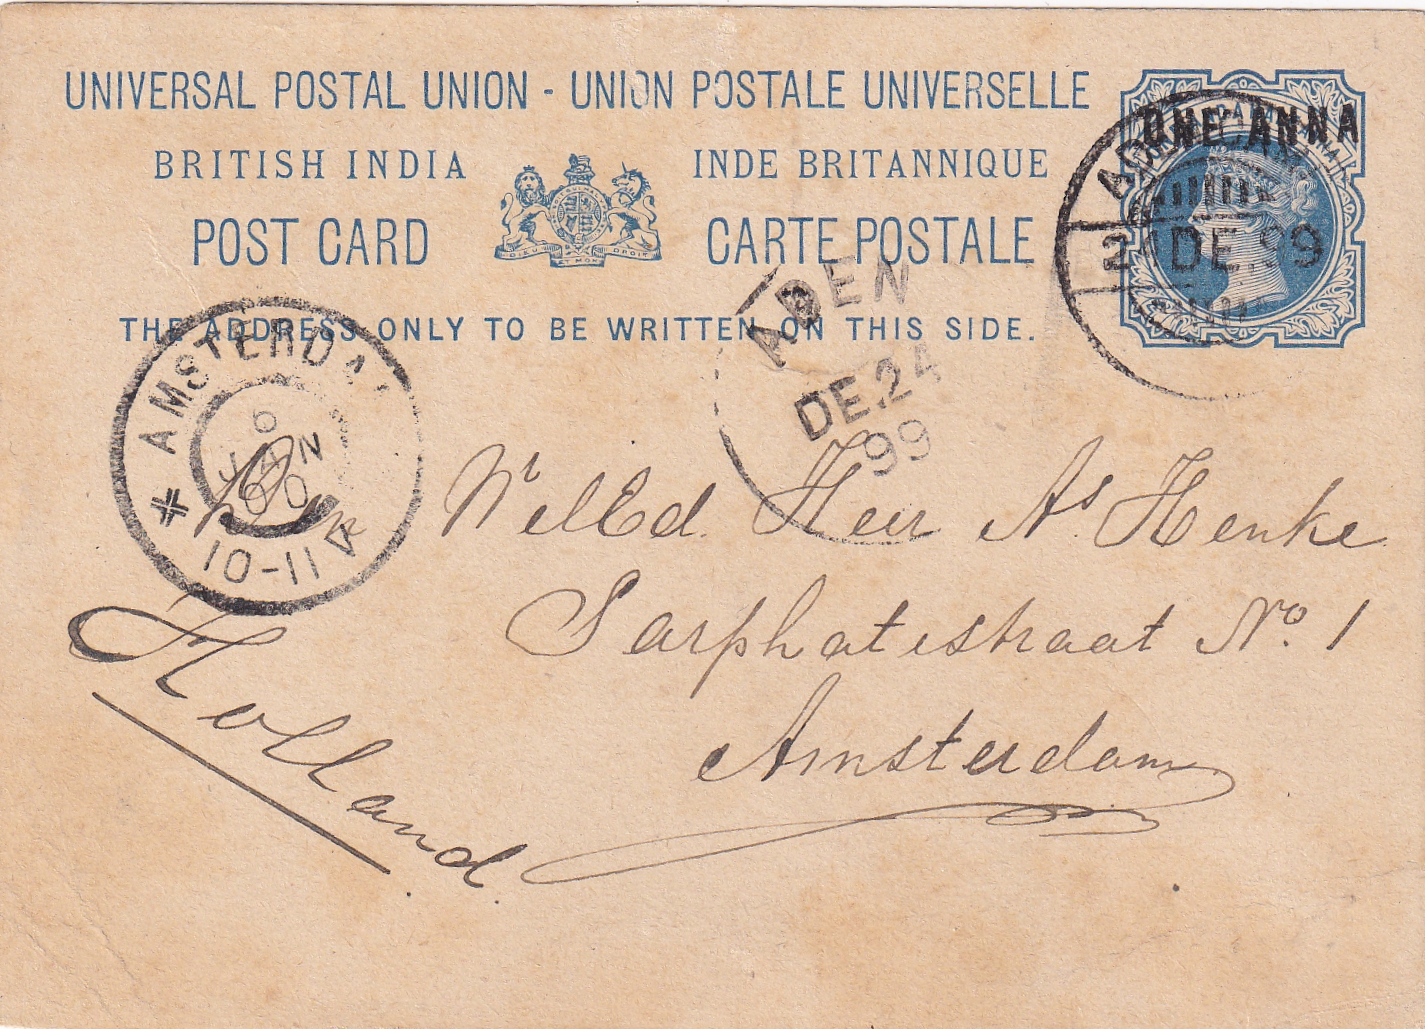 UNIVERSAL POSTAL UNION - UNION POSTALE UNIVERSELLE
BRITISH INDIA
INDE BRITANNIQUE
POST CARD
CARTE POSTALE
DIEU ET MON DROIT
THE ADDRESS ONLY TO BE WRITTEN ON THIS SIDE.
ONE ANNA
DE.99
ADEN
DE.24
99
AMSTERDA
6
JAN
00
10-11 V
Den WelEd. Heer As. Henke
Sarphatistraat No. 1
Amsterdam
Holland.